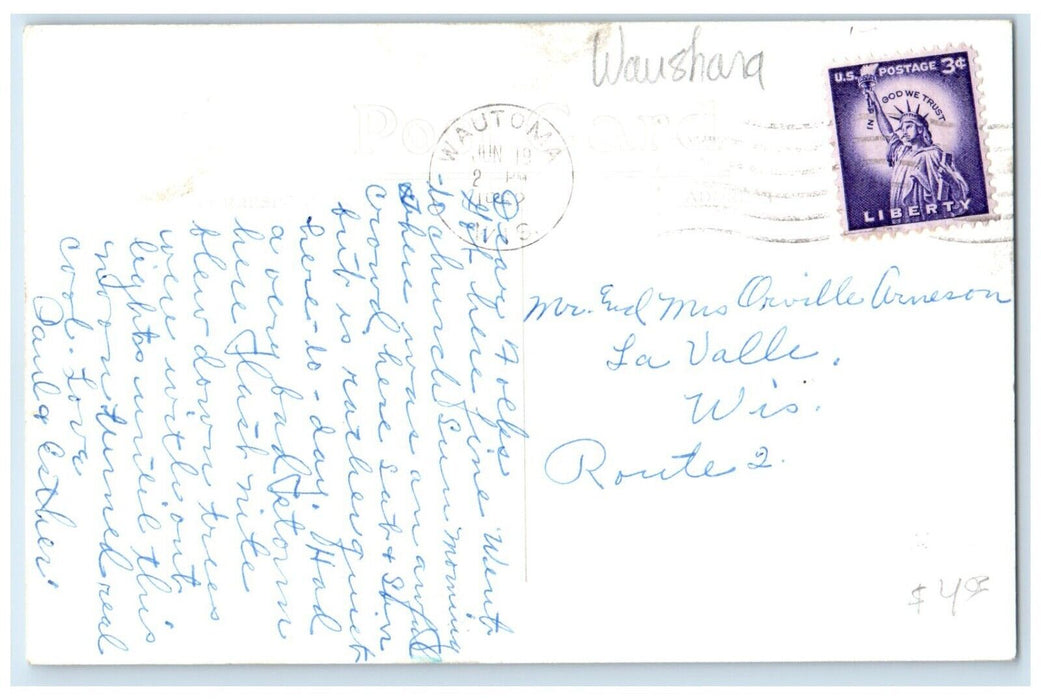 Waushara
U.S. POSTAGE 3¢
IN GOD WE TRUST
LIBERTY
Post Card
WAUTOMA
JUN 19
2 PM
WIS.
Dear Folks
Got here fine Went
to church Sun morning
there was an awful
crowd here Sat & Sun
but is rather quiet
here to-day. Had
a very bad storm
here last nite
blew down trees
were without
lights until this
noon turned real
cool. Love
Paul & Esther
Mr. End Mrs Orville Arneson
La Valle,
Wis.
Route 2.